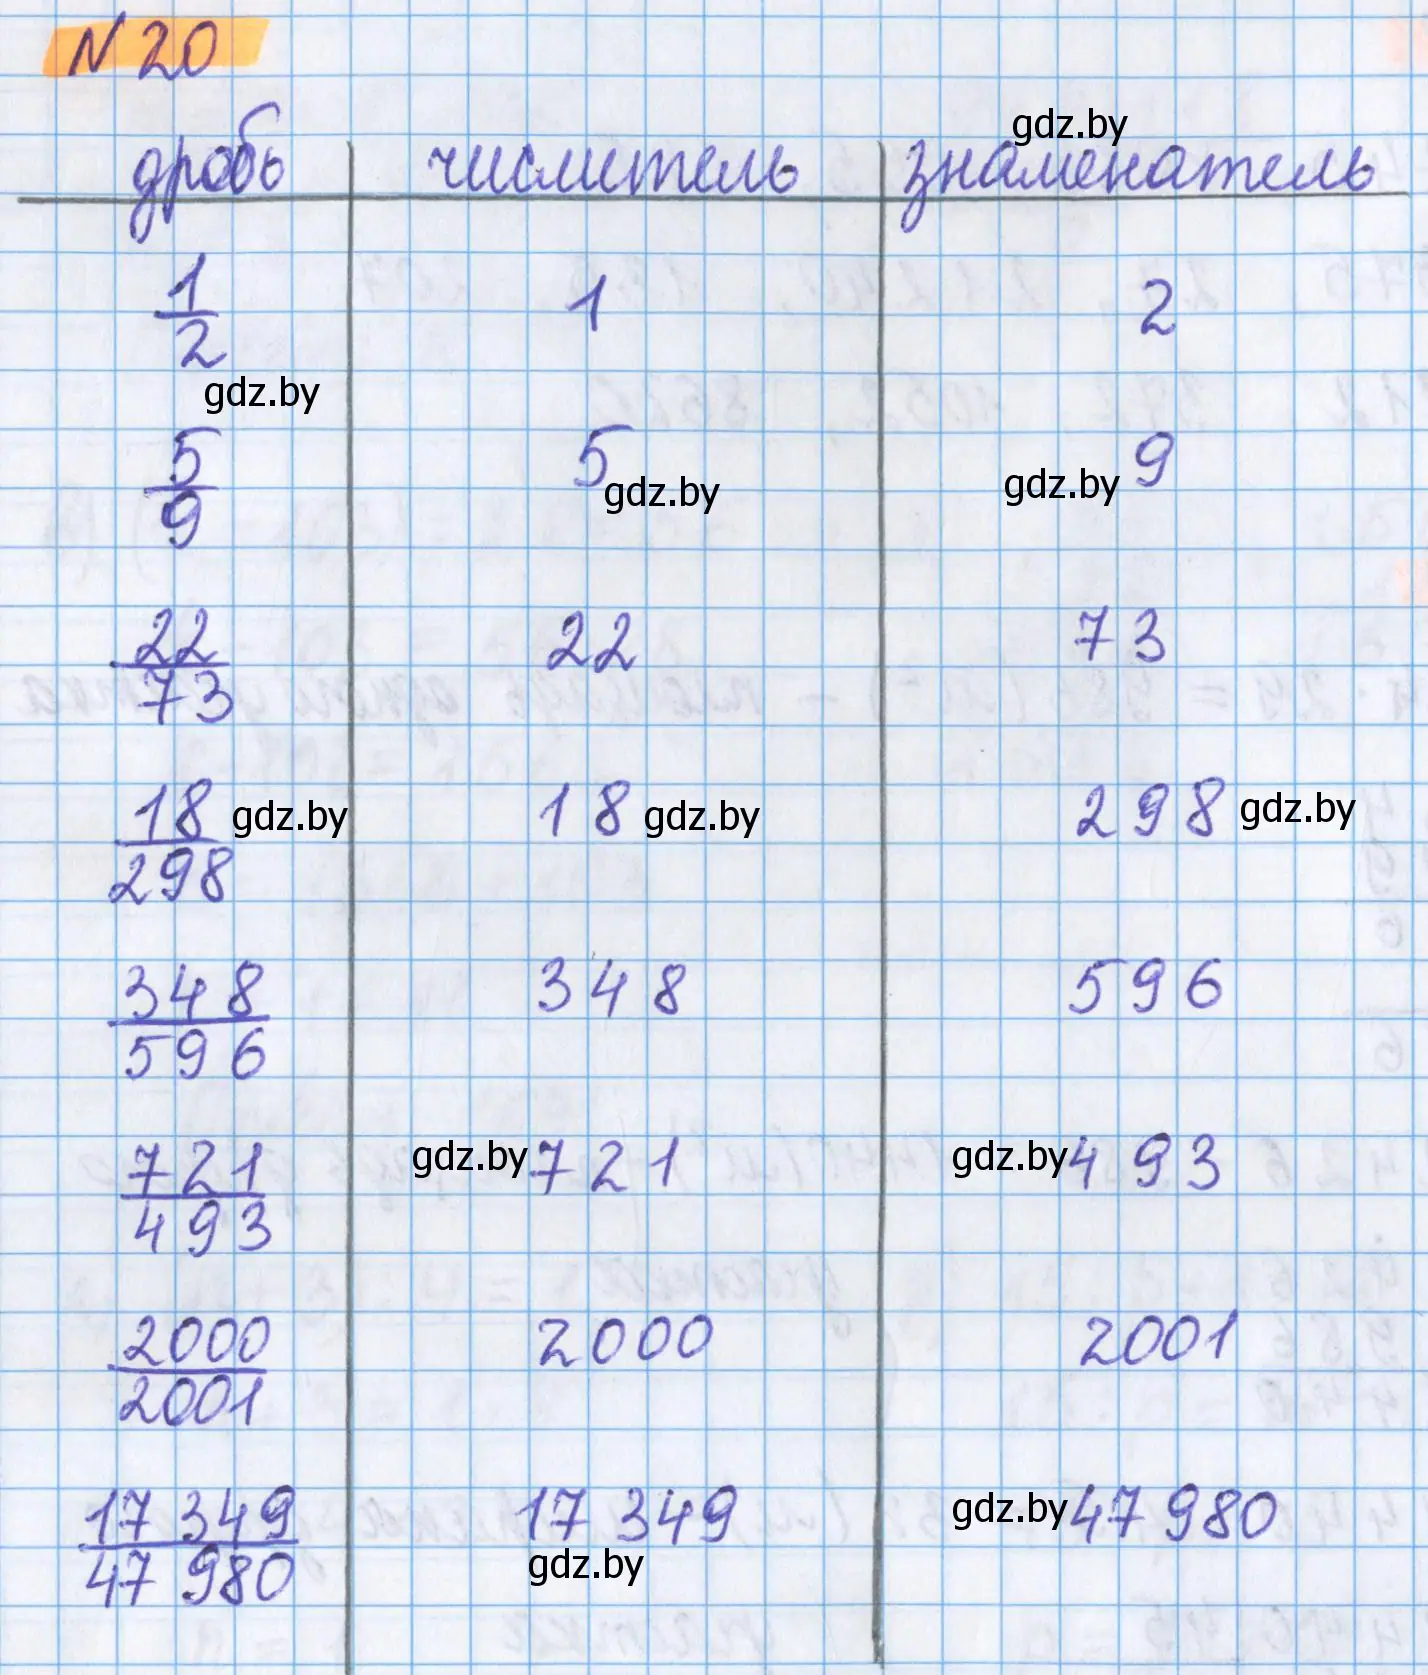 N 20
gdz.by
дробь числитель знаменатель
1/2 1 2
gdz.by
5/9 5 9
gdz.by gdz.by
22/73 22 73
18/298 gdz.by 18 gdz.by 298 gdz.by
348/596 348 596
721/493 gdz.by 721 gdz.by 493
2000/2001 2000 2001
17 349/47 980 17 349 gdz.by 47 980
gdz.by